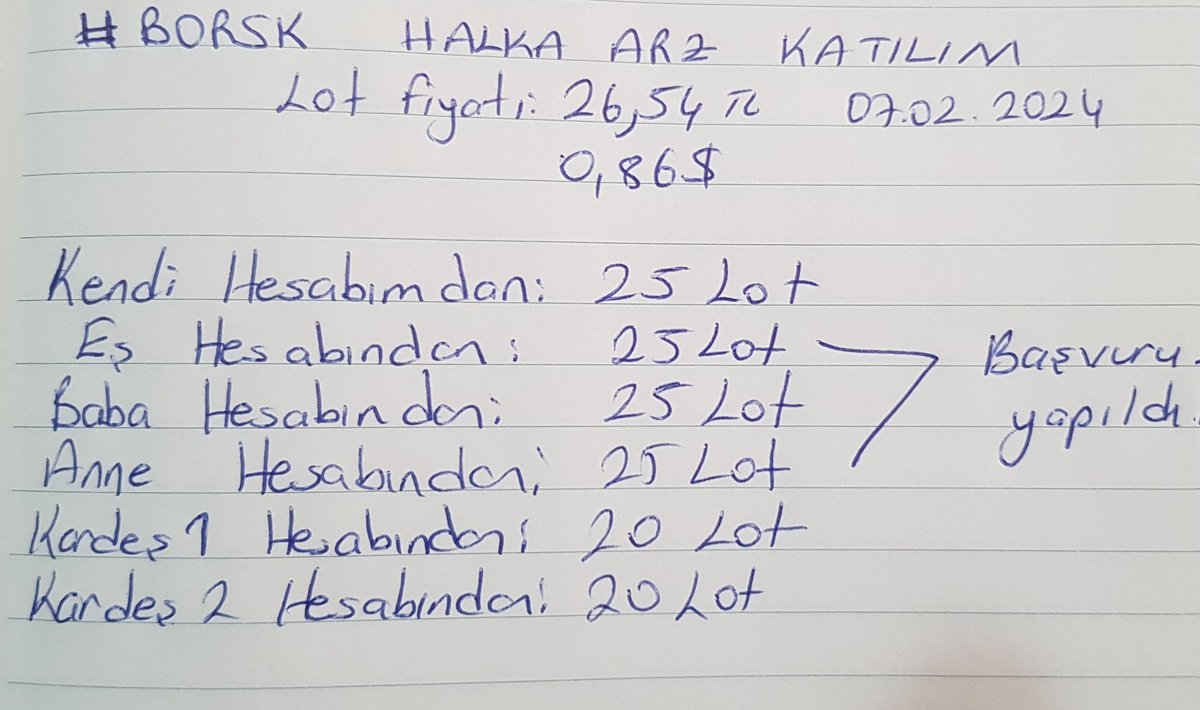 #BORSK HALKA ARZ KATILIM
Lot fiyatı: 26,54 TL 07.02.2024
0,86$
Kendi Hesabımdan: 25 Lot
Eş Hesabından: 25 Lot
Baba Hesabından: 25 Lot
Anne Hesabından: 25 Lot
Kardeş 1 Hesabından: 20 Lot
Kardeş 2 Hesabından: 20 Lot
Başvuru
yapıldı.